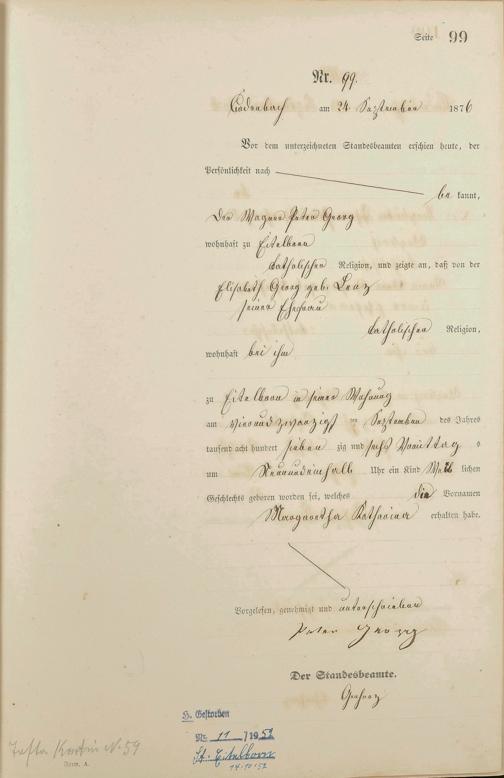 Seite 99
Nr. 99.
Cadenbach am 24 September 1876
Vor dem unterzeichneten Standesbeamten erschien heute, der
Persönlichkeit nach
be kannt,
der Wagner Peter Georg
wohnhaft zu Eitelborn
katholischer Religion, und zeigte an, daß von der
Elisabeth Georg geb.
seiner Ehefrau
katholischer Religion,
wohnhaft bei ihm
zu Eitelborn in seiner Wohnung
am vierundzwanzigst en September des Jahres
tausend acht hundert sieben zig und sechs Vormittag s
um Uhr ein Kind weib lichen
Geschlechts geboren worden sei, welches die Vornamen
Margaretha Katharina erhalten habe.
Vorgelesen, genehmigt und unterschrieben
Peter Georg
Der Standesbeamte.
H. Gestorben
Nr. 11 / 1952
St. Eitelborn
14.10.52
N. 59
Form. A.